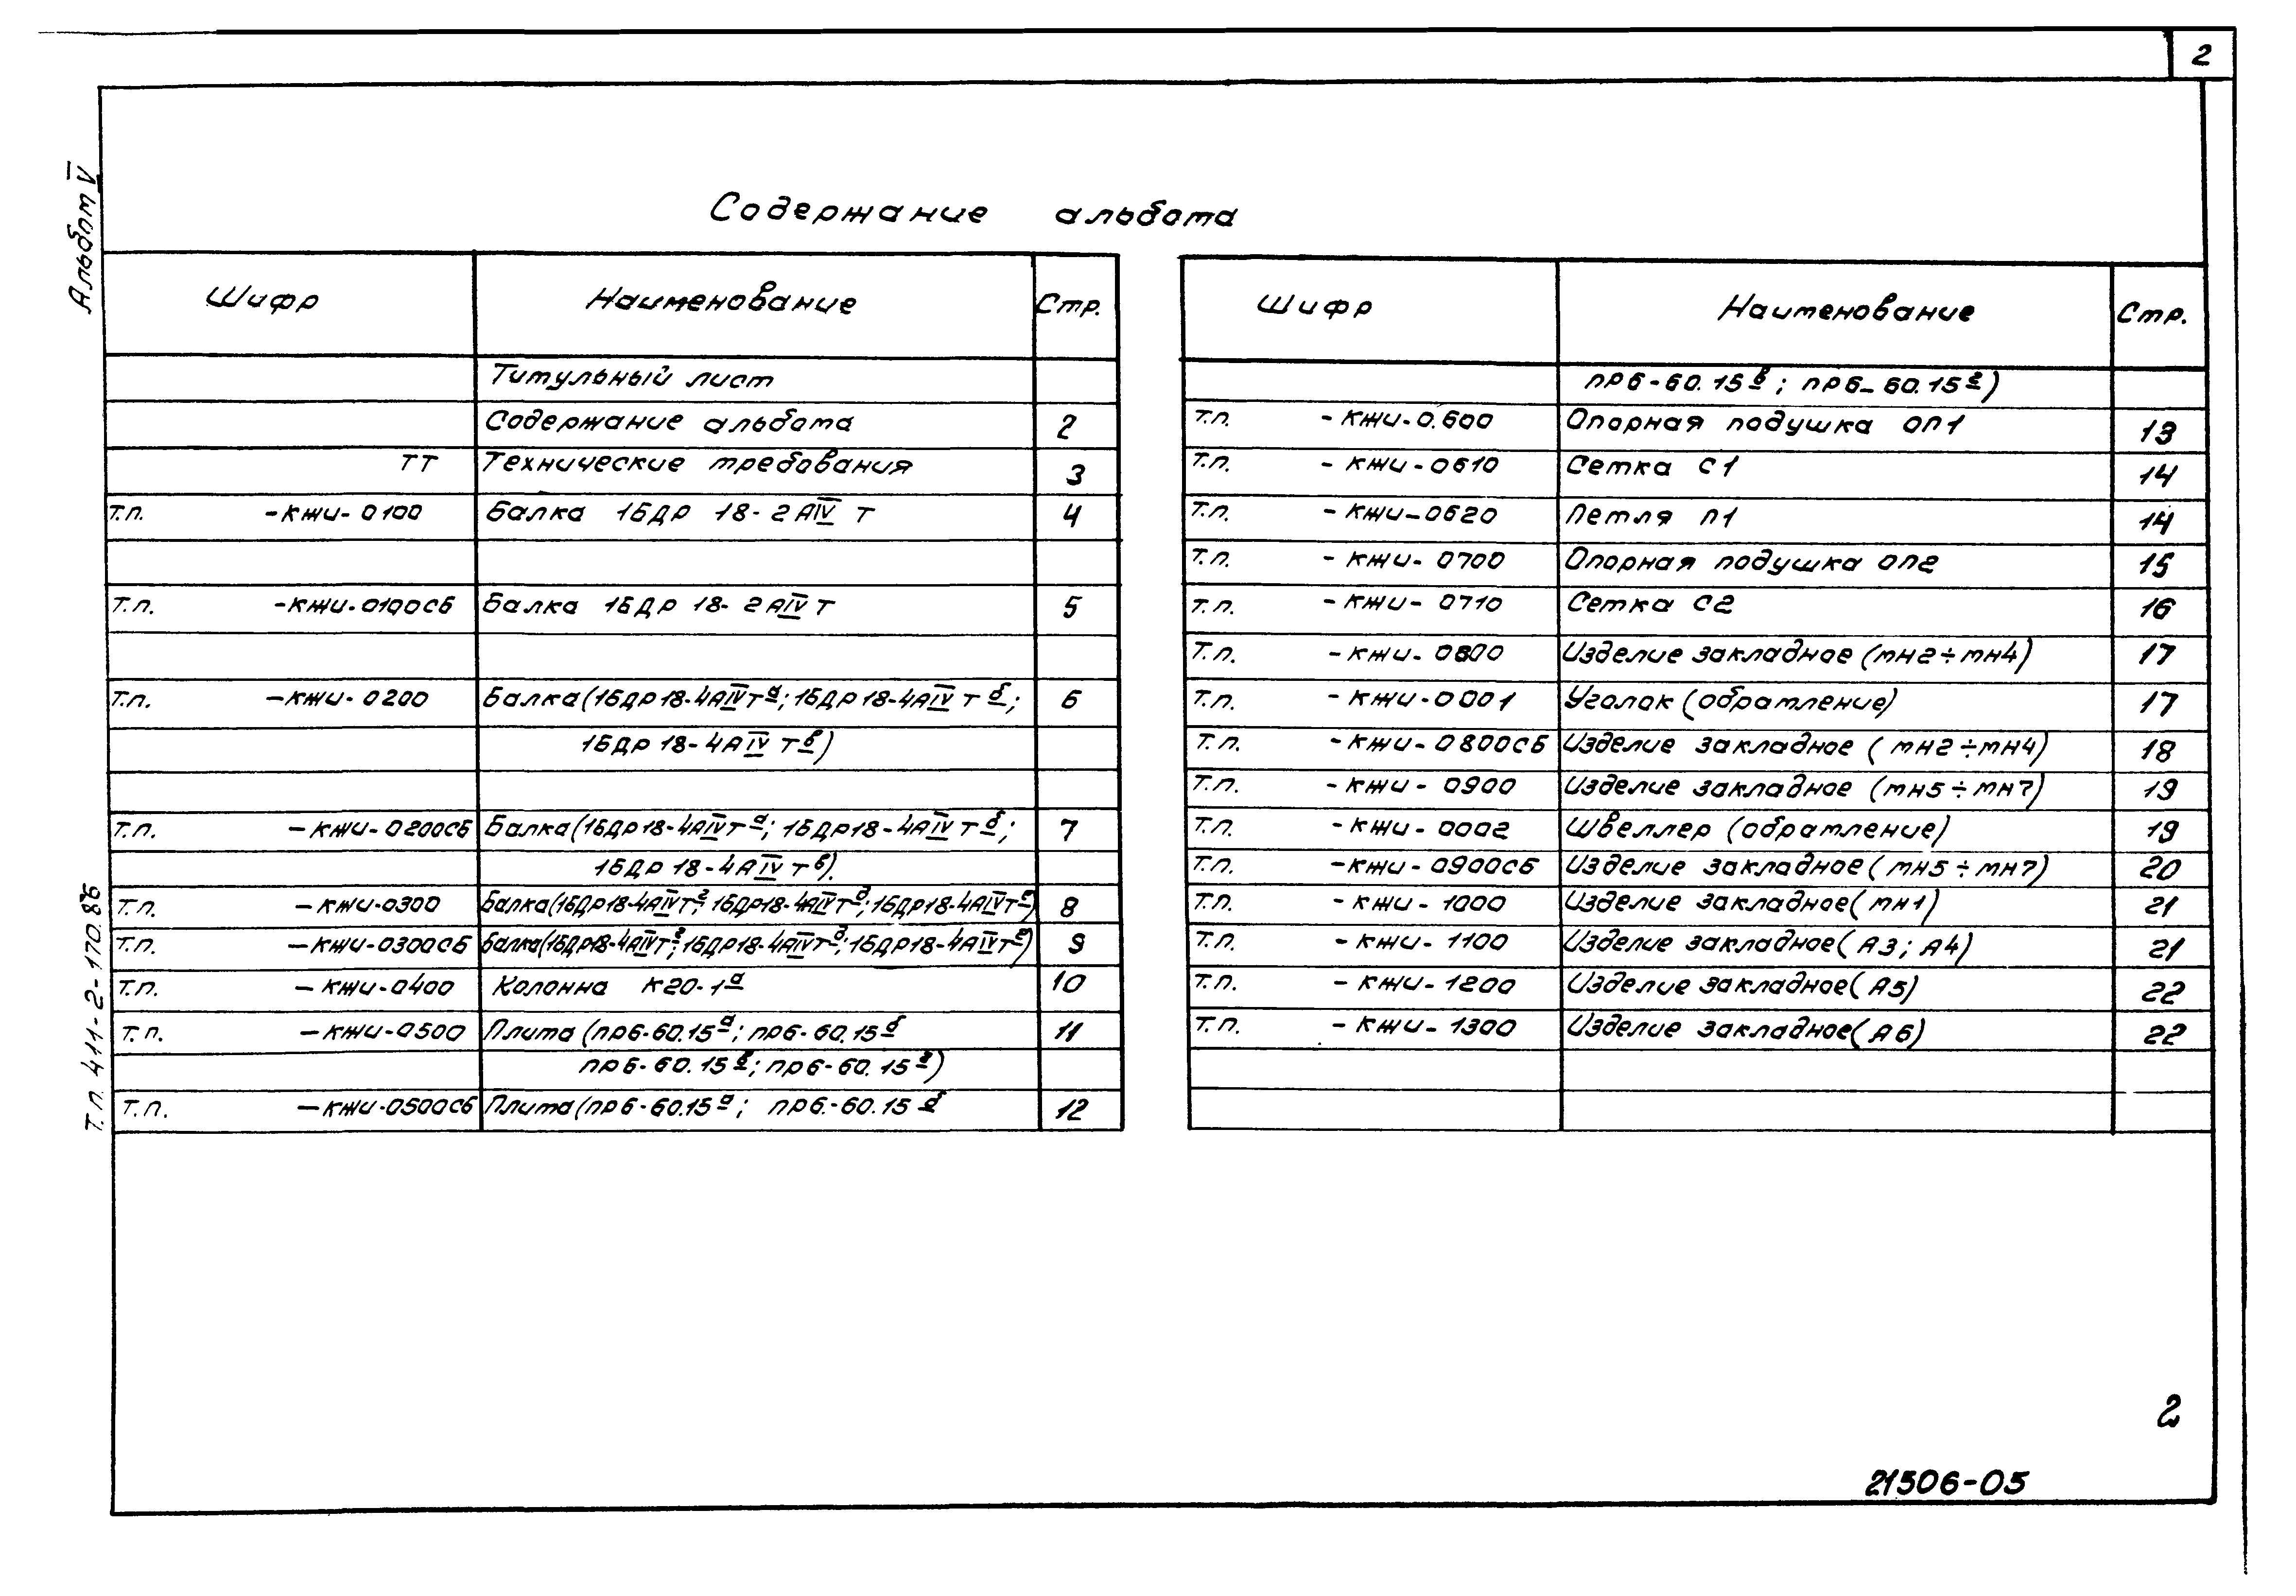 2
Альбом V
Содержание альбома
Шифр Наименование Стр.
Титульный лист
Содержание альбома 2
ТТ Технические требования 3
Т.п. -КЖИ-0100 Балка 1БДР 18-2АIV Т 4
Т.п. -КЖИ-0100СБ Балка 1БДР 18-2АIV Т 5
Т.п. -КЖИ-0200 Балка (1БДР 18-4АIVТ а; 1БДР 18-4АIV Т б; 6
1БДР 18-4АIV Т в)
Т.п. -КЖИ-0200СБ Балка (1БДР 18-4АIVТ а; 1БДР 18-4АIV Т б; 7
1БДР 18-4АIV Т в).
Т.п. -КЖИ-0300 Балка (1БДР 18-4АIVТ г; 1БДР 18-4АIVТ д; 1БДР 18-4АIVТ е) 8
Т.п. -КЖИ-0300СБ Балка (1БДР 18-4АIVТ г; 1БДР 18-4АIVТ д; 1БДР 18-4АIVТ е) 9
Т.п. -КЖИ-0400 Колонна К20-1а 10
Т.п. -КЖИ-0500 Плита (ПР6-60.15 а; ПР6-60.15 б 11
ПР6-60.15 в; ПР6-60.15 г)
Т.п. -КЖИ-0500СБ Плита (ПР6-60.15 а; ПР6-60.15 б 12
Шифр Наименование Стр.
ПР6-60.15 в; ПР6-60.15 г)
Т.п. -КЖИ-0.600 Опорная подушка ОП1 13
Т.п. -КЖИ-0610 Сетка С1 14
Т.п. -КЖИ-0620 Петля П1 14
Т.п. -КЖИ-0700 Опорная подушка ОП2 15
Т.п. -КЖИ-0710 Сетка С2 16
Т.п. -КЖИ-0800 Изделие закладное (МН2÷МН4) 17
Т.п. -КЖИ-0001 Уголок (обрамление) 17
Т.п. -КЖИ-0800СБ Изделие закладное (МН2÷МН4) 18
Т.п. -КЖИ-0900 Изделие закладное (МН5÷МН7) 19
Т.п. -КЖИ-0002 Швеллер (обрамление) 19
Т.п. -КЖИ-0900СБ Изделие закладное (МН5÷МН7) 20
Т.п. -КЖИ-1000 Изделие закладное (МН1) 21
Т.п. -КЖИ-1100 Изделие закладное (А3; А4) 21
Т.п. -КЖИ-1200 Изделие закладное (А5) 22
Т.п. -КЖИ-1300 Изделие закладное (А6) 22
Т.п. 411-2-170.86
2
21506-05